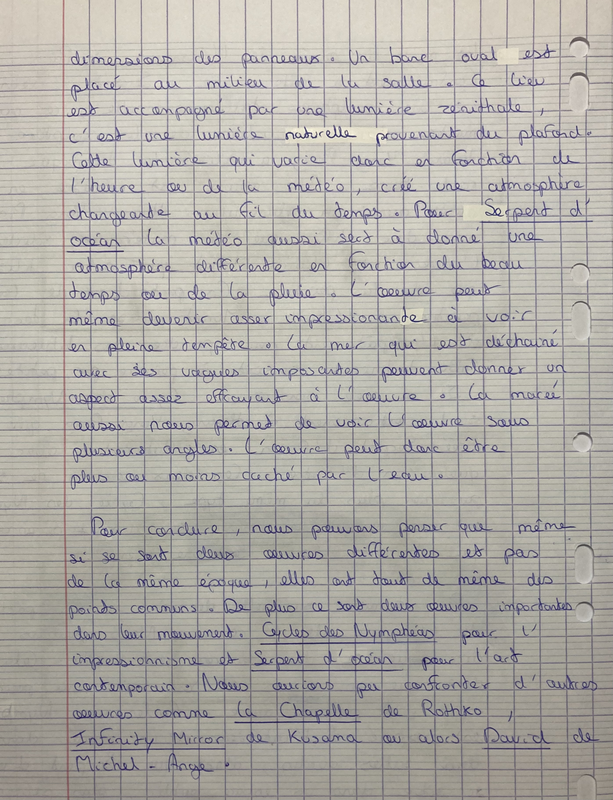 dimensions des panneaux. Un banc oval est
placé au milieu de la salle. Ce lieu
est accompagné par une lumière zénithale,
c'est une lumière naturelle provenant du plafond.
Cette lumière qui varie donc en fonction de
l'heure ou de la météo, créé une atmosphère
changeante au fil du temps. Pour Serpent d'
océan la météo aussi sert à donné une
atmosphère différente en fonction du beau
temps ou de la pluie. L'oeuvre peut
même devenir asser impressionante à voir
en pleine tempête. La mer qui est déchainé
avec ses vagues imposantes peuvent donner un
aspect assez effrayant à l'oeuvre. La marée
aussi nous permet de voir l'oeuvre sous
plusieurs angles. L'oeuvre peut donc être
plus ou moins caché par l'eau.

Pour conclure, nous pouvons penser que même
si se sont deux oeuvres différentes et pas
de la même époque, elles ont tout de même des
points communs. De plus ce sont deux œuvres importantes
dans leur mouvement. Cycles des Nymphéas pour l'
impressionnisme et Serpent d'océan pour l'art
contemporain. Nous aurions pu confronter d'autres
oeuvres comme la Chapelle de Rothko,
Infinity Mirror de Kusama ou alors David de
Michel-Ange.